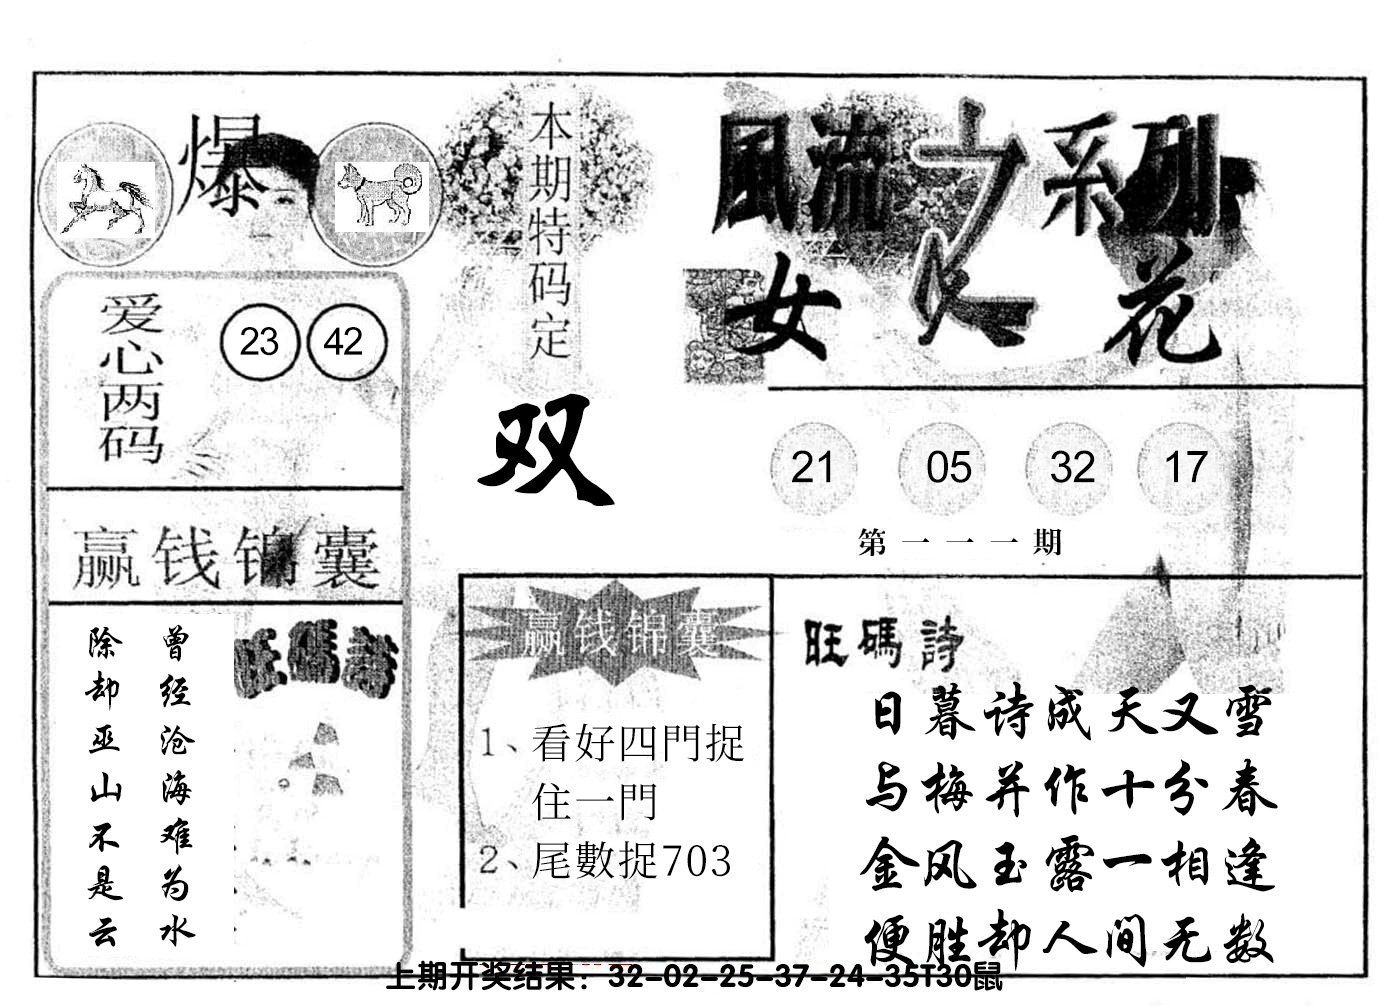 爆
本期特码定
双
風流之系列
女人花
爱心两码
23 42
21 05 32 17
第一一一期
赢钱锦囊
曾经沧海难为水
除却巫山不是云
旺碼詩
赢钱锦囊
1、看好四門捉
住一門
2、尾數捉703
旺碼詩
日暮诗成天又雪
与梅并作十分春
金风玉露一相逢
便胜却人间无数
上期开奖结果：32-02-25-37-24-35T30鼠